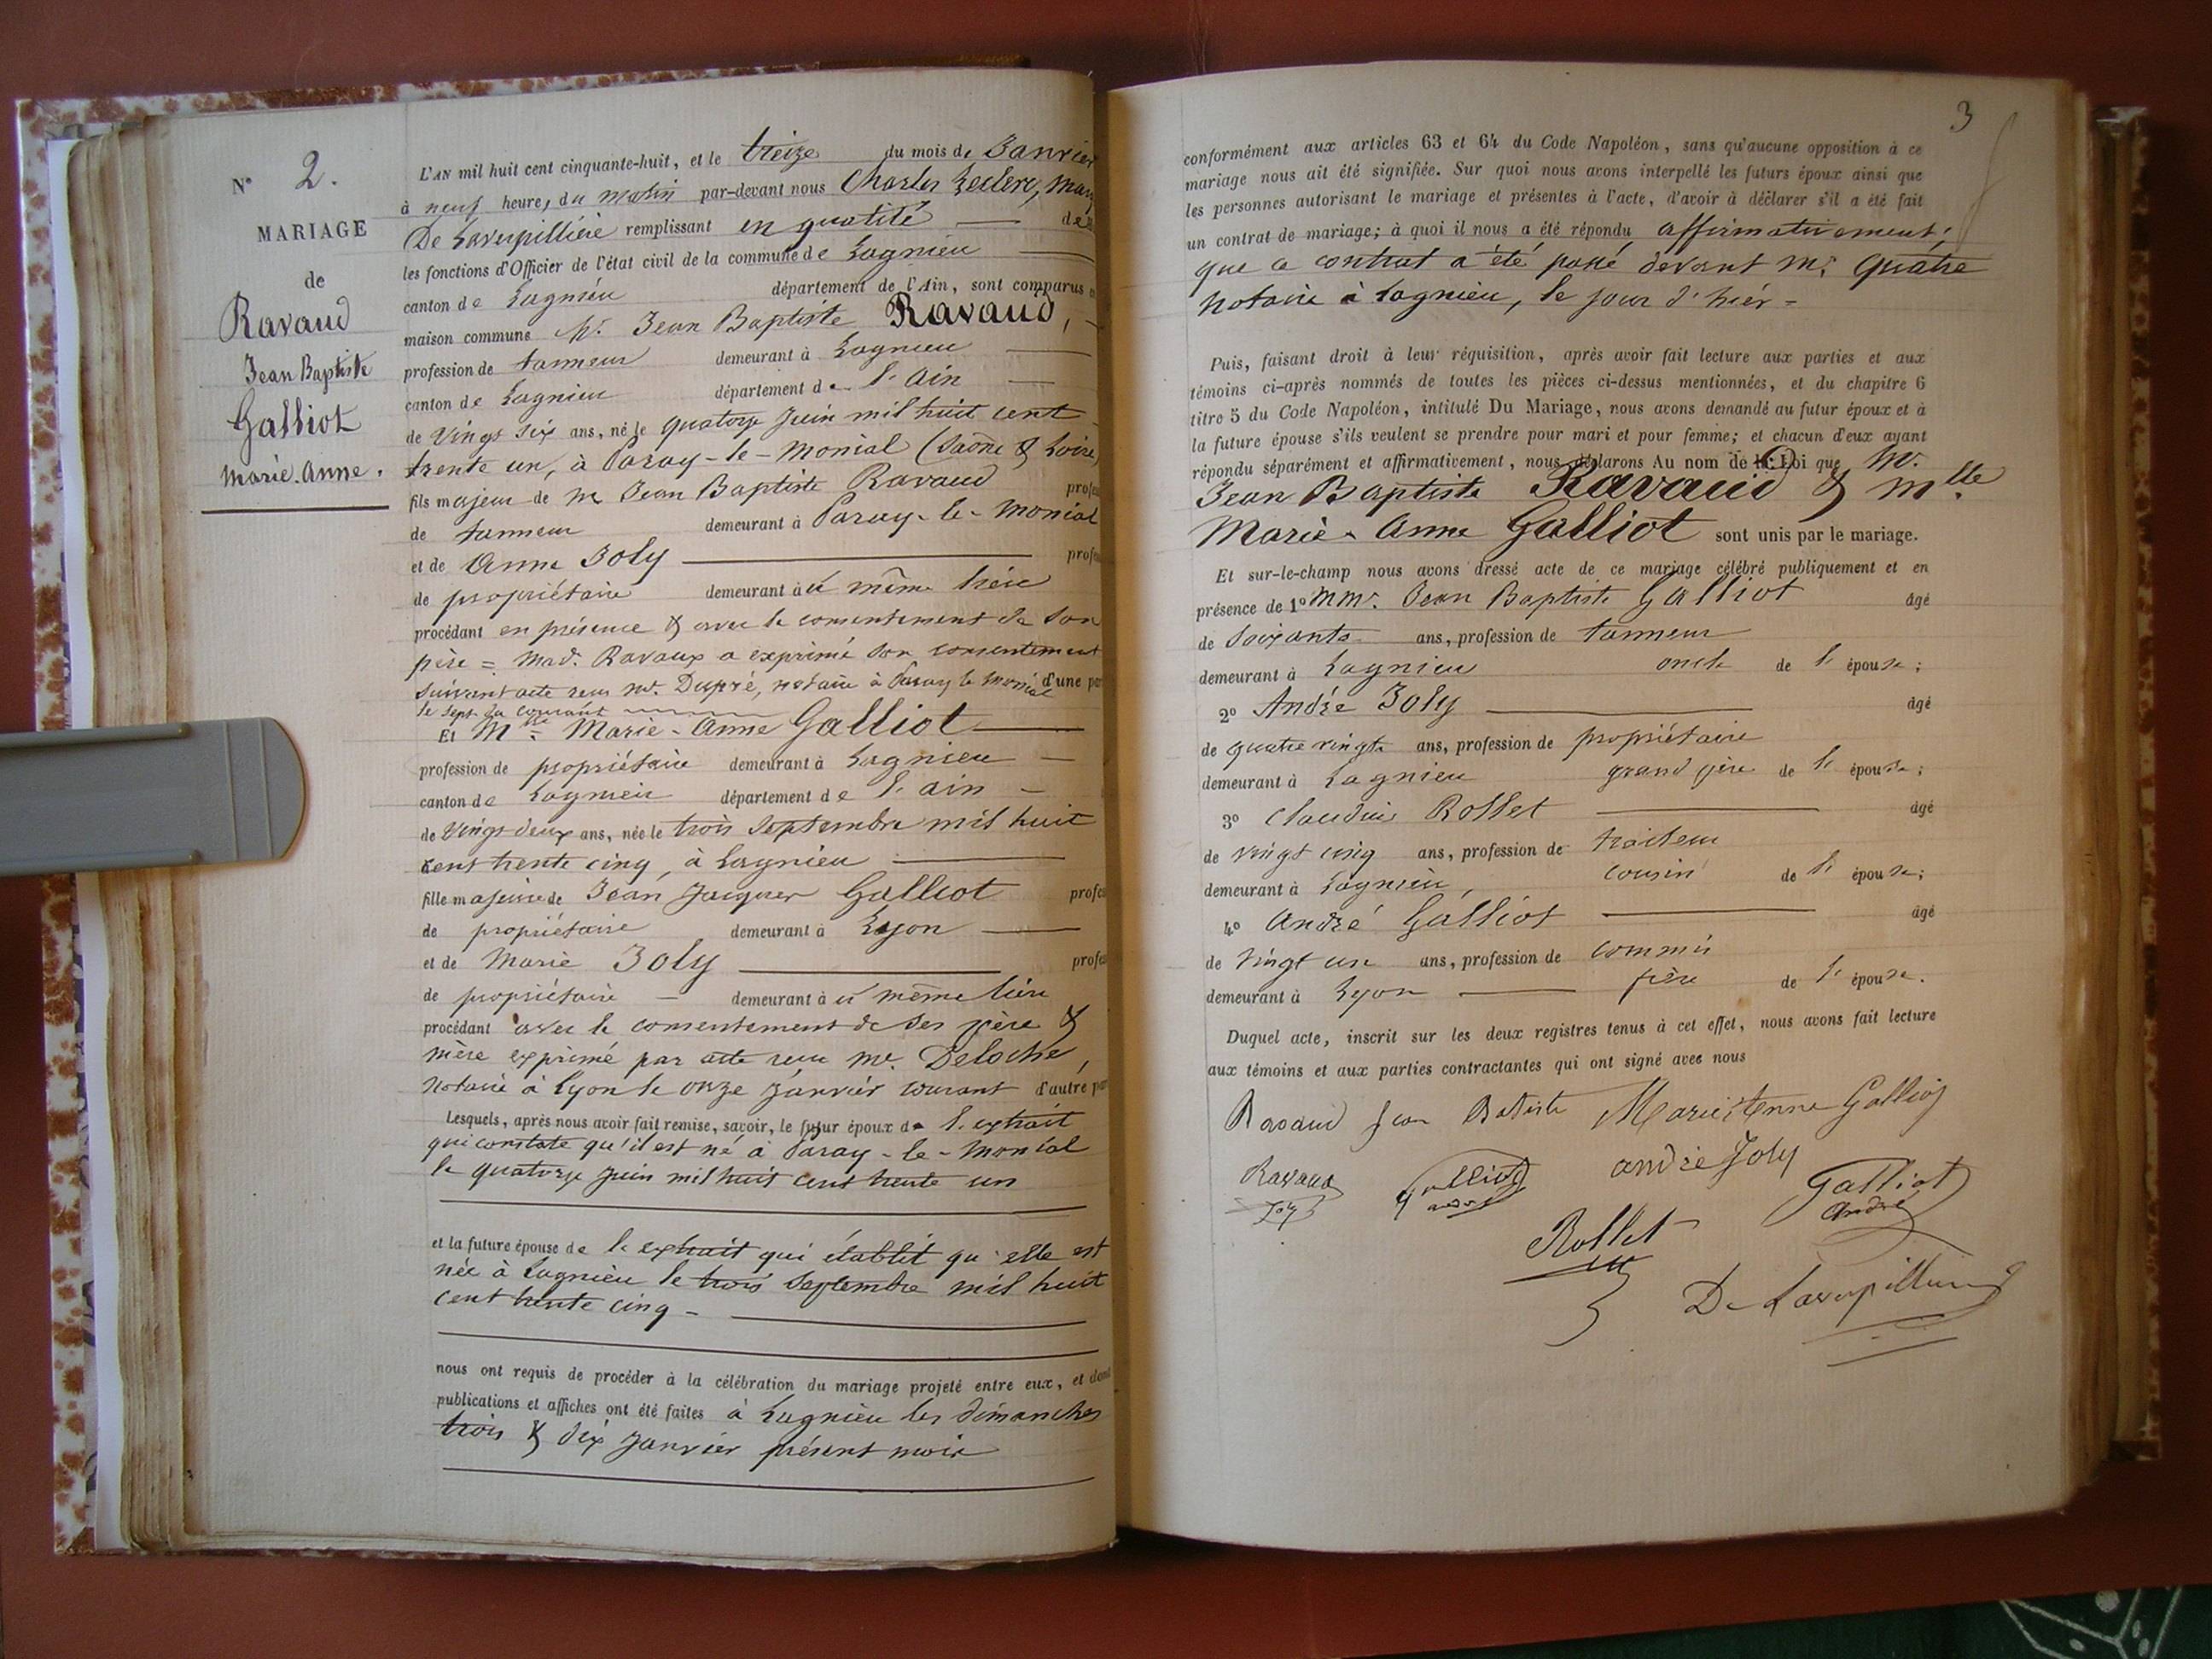 N° 2.
MARIAGE
de
Ravaud
Jean Baptiste
Galliot
Marie. Anne.
L'AN mil huit cent cinquante-huit, et le treize du mois de Janvier
à neuf heures du matin par-devant nous Charles Leclerc, 
De Laverpillière remplissant en qualité de
les fonctions d'Officier de l'état civil de la commune de Lagnieu
canton de Lagnieu département de l'Ain, sont comparus
maison commune Mr. Jean Baptiste Ravaud,
profession de tanneur demeurant à Lagnieu
canton de Lagnieu département de l'Ain
de Vingt six ans, né le quatorze Juin mil huit cent
trente un, à Paray-le-Monial (Saône & Loire)
fils majeur de M Jean Baptiste Ravaud
de tanneur demeurant à Paray-le-Monial
et de Anne Joly
de propriétaire demeurant à même lieu
procédant en présence & avec le consentement de son
père = Mad. Ravaux a exprimé son consentement
suivant acte reçu Mr. Dupré, notaire à Paray le Monial d'une
le sept du courant
Et Mlle Marie-Anne Galliot
profession de propriétaire demeurant à Lagnieu
canton de Lagnieu département de l'Ain
de Vingt deux ans, née le trois Septembre mil huit
cent trente cinq, à Lagnieu
fille majeure de Jean Jacques Galliot
de propriétaire demeurant à Lyon
et de Marie Joly
de propriétaire demeurant à même lieu
procédant avec le consentement de ses père &
mère exprimé par acte reçu Me. Deloche,
Notaire à Lyon le onze Janvier courant d'autre
Lesquels, après nous avoir fait remise, savoir, le futur époux de l'extrait
qui constate qu'il est né à Paray-le-Monial
le quatorze Juin mil huit cent trente un
et la future épouse de l'extrait qui établit qu'elle est
née à Lagnieu le trois Septembre mil huit
cent trente cinq -
nous ont requis de procéder à la célébration du mariage projeté entre eux, et dont
publications et affiches ont été faites à Lagnieu les dimanches
trois & dix Janvier présent mois
3
conformément aux articles 63 et 64 du Code Napoléon, sans qu'aucune opposition à ce
mariage nous ait été signifiée. Sur quoi nous avons interpellé les futurs époux ainsi que
les personnes autorisant le mariage et présentes à l'acte, d'avoir à déclarer s'il a été fait
un contrat de mariage; à quoi il nous a été répondu affirmativement,
que ce contrat a été passé devant Me. Quatre
Notaire à Lagnieu, le jour d'hier -
Puis, faisant droit à leur réquisition, après avoir fait lecture aux parties et aux
témoins ci-après nommés de toutes les pièces ci-dessus mentionnées, et du chapitre 6
titre 5 du Code Napoléon, intitulé Du Mariage, nous avons demandé au futur époux et à
la future épouse s'ils veulent se prendre pour mari et pour femme; et chacun d'eux ayant
répondu séparément et affirmativement, nous déclarons Au nom de la Loi que Mr.
Jean Baptiste Ravaud & Mlle
Marie-Anne Galliot sont unis par le mariage.
Et sur-le-champ nous avons dressé acte de ce mariage célébré publiquement et en
présence de 1° MMr. Jean Baptiste Galliot âgé
de Soixante ans, profession de tanneur
demeurant à Lagnieu oncle de l'épouse;
2° André Joly âgé
de quatre vingts ans, profession de propriétaire
demeurant à Lagnieu grand père de l'épouse;
3° Claudius Rollet âgé
de vingt cinq ans, profession de traiteur
demeurant à Lagnieu, cousin de l'épouse;
4° André Galliot âgé
de Vingt un ans, profession de commis
demeurant à Lyon frère de l'épouse.
Duquel acte, inscrit sur les deux registres tenus à cet effet, nous avons fait lecture
aux témoins et aux parties contractantes qui ont signé avec nous
Ravaud Jean Batiste Marie Anne Galliot
Ravaud Galliot andré Joly Galliot
Joly André
Rollet
De Laverpillière